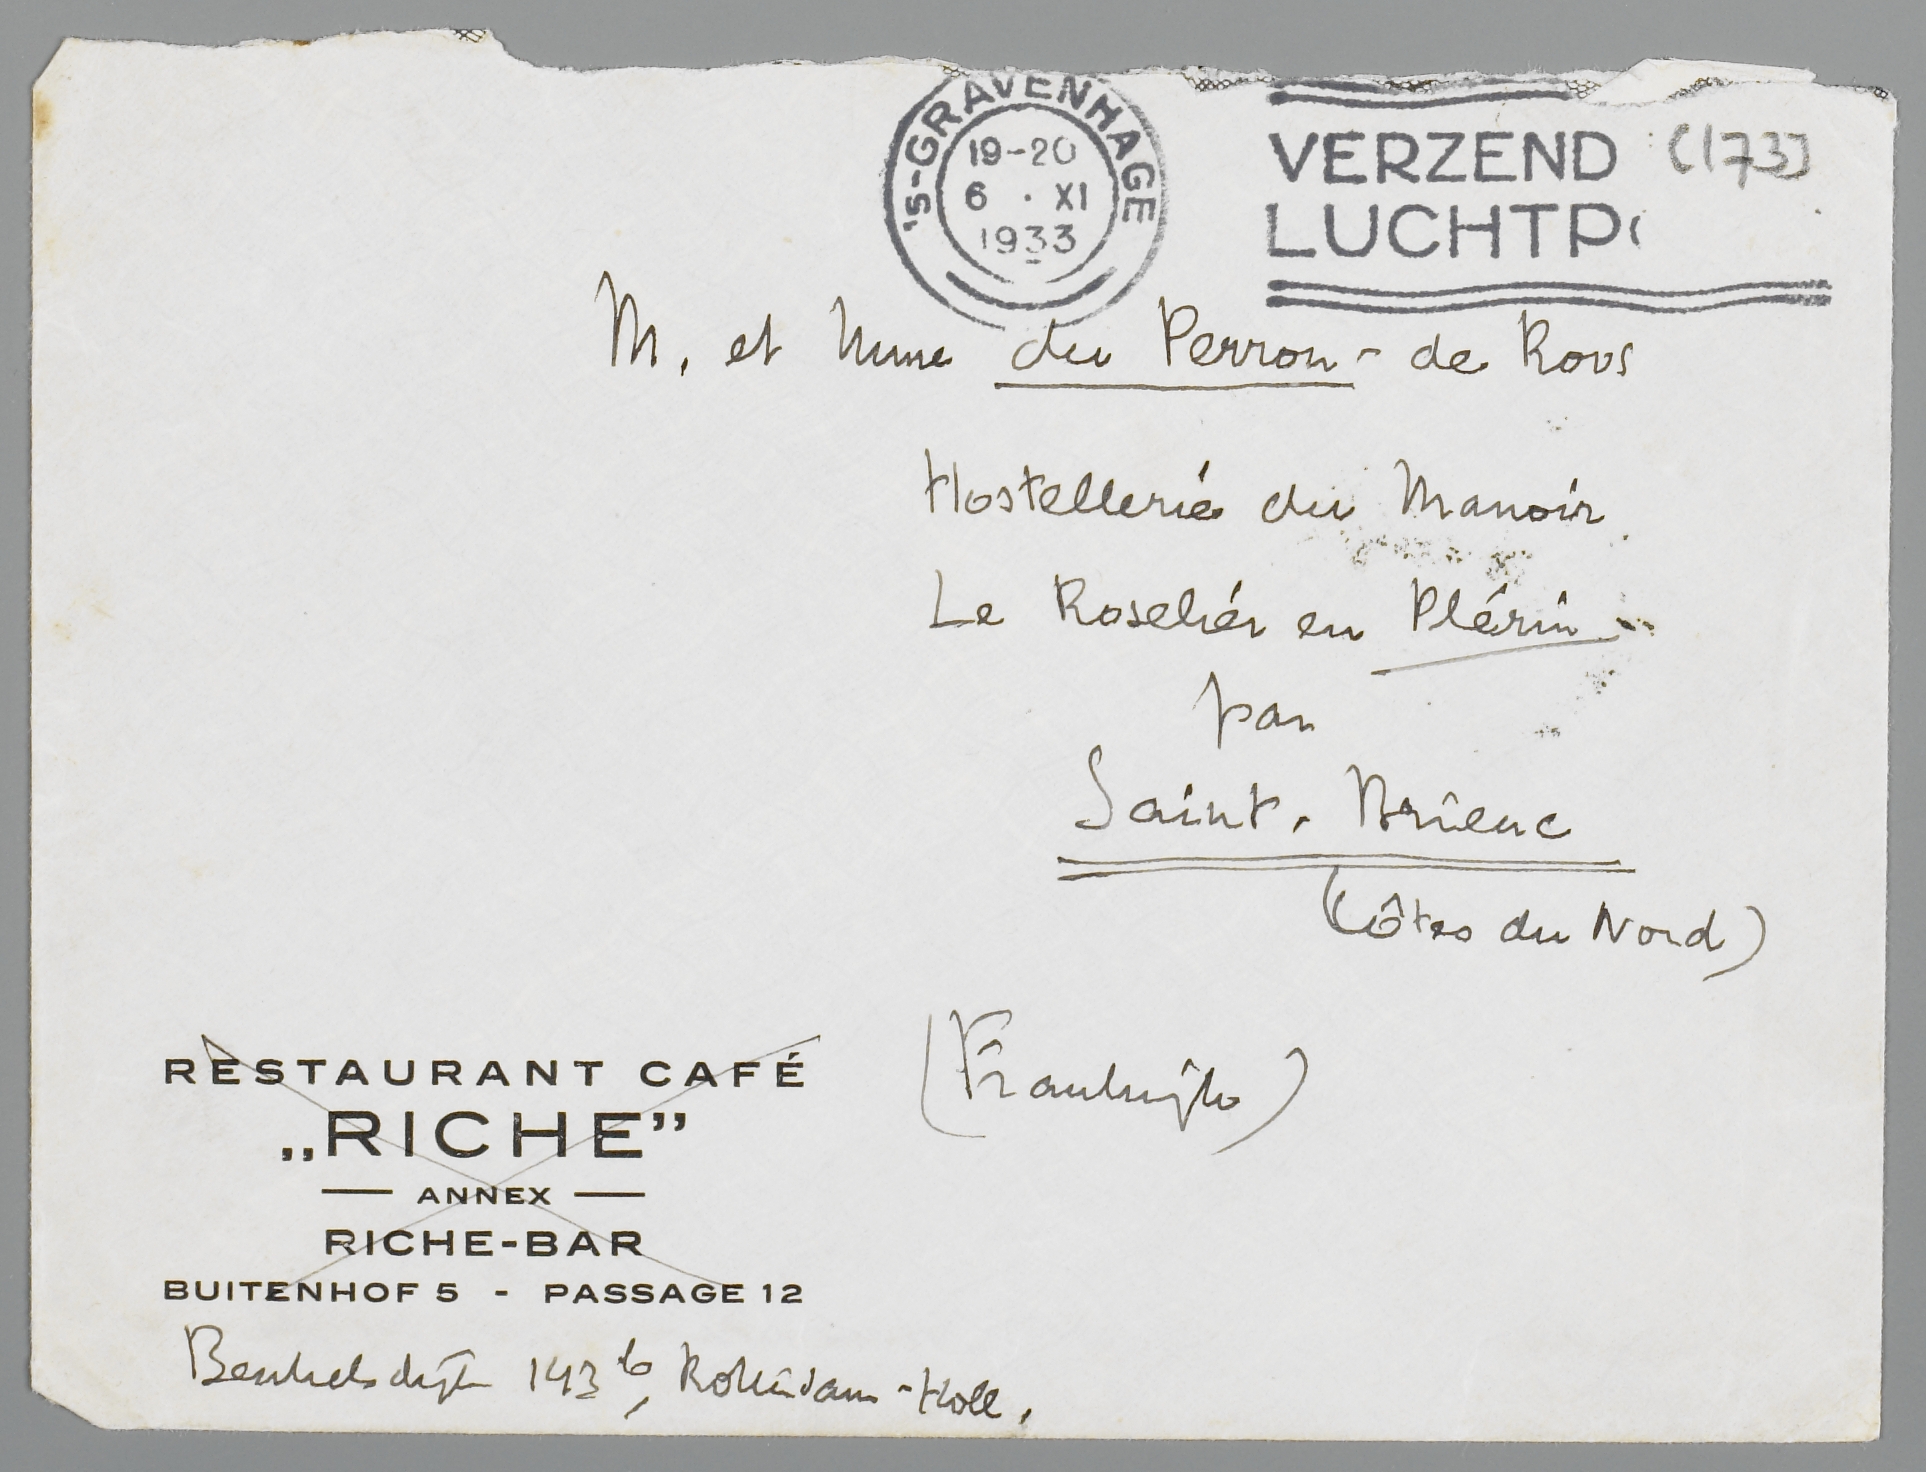 'S-GRAVENHAGE
19-20
6 · XI
1933
VERZEND
LUCHTP
(173]
M. et Mme du Perron - de Roos
Hostellerie du Manoir
Le Roselier en Plérin
par
Saint-Brieuc
(Côtes du Nord)
(Frankrijk)
RESTAURANT CAFÉ
„RICHE”
— ANNEX —
RICHE-BAR
BUITENHOF 5 - PASSAGE 12
Beukelsdijk 143b, Rotterdam - Holl.